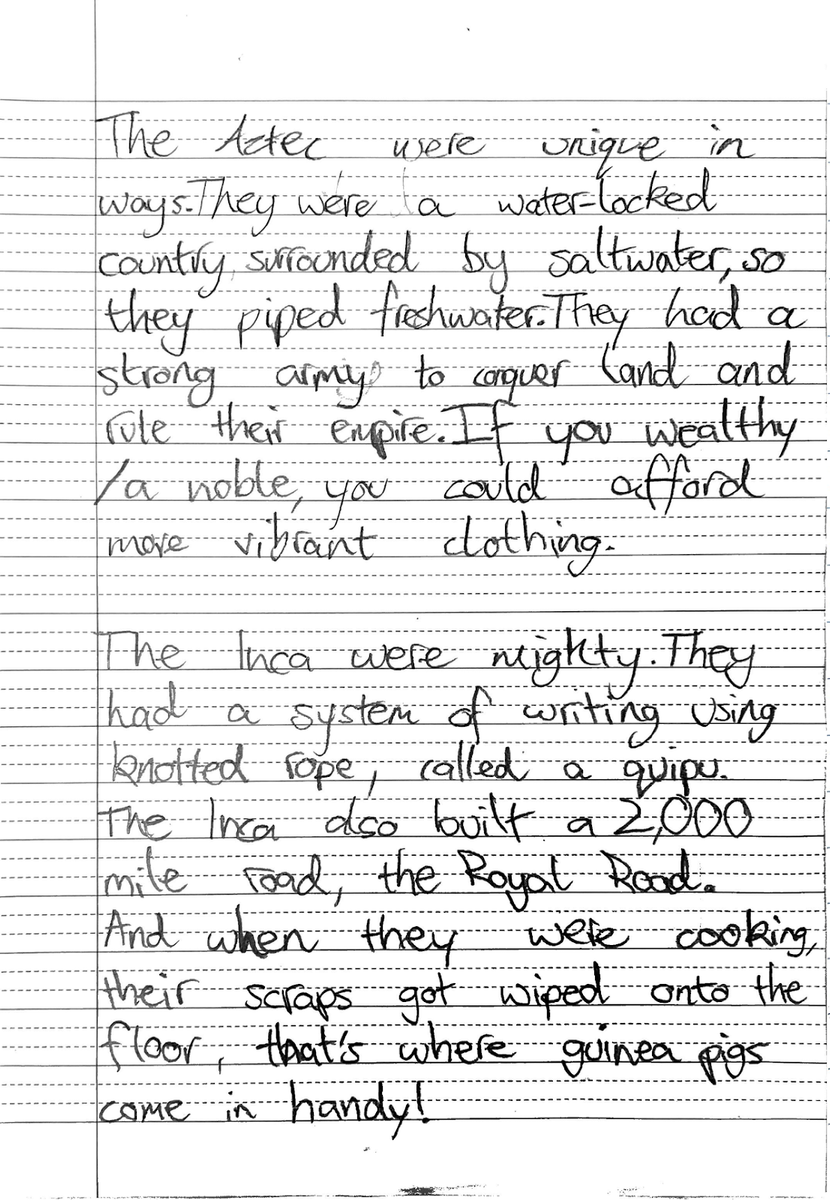 The Aztec were unique in
ways. They were a water-locked
country, surrounded by saltwater, so
they piped freshwater. They had a
strong army to conquer land and
rule their empire. If you wealthy
/a noble, you could afford
more vibrant clothing.
The Inca were mighty. They
had a system of writing using
knotted rope, called a quipu.
The Inca also built a 2,000
mile road, the Royal Road.
And when they were cooking,
their scraps got wiped onto the
floor, that's where guinea pigs
come in handy!